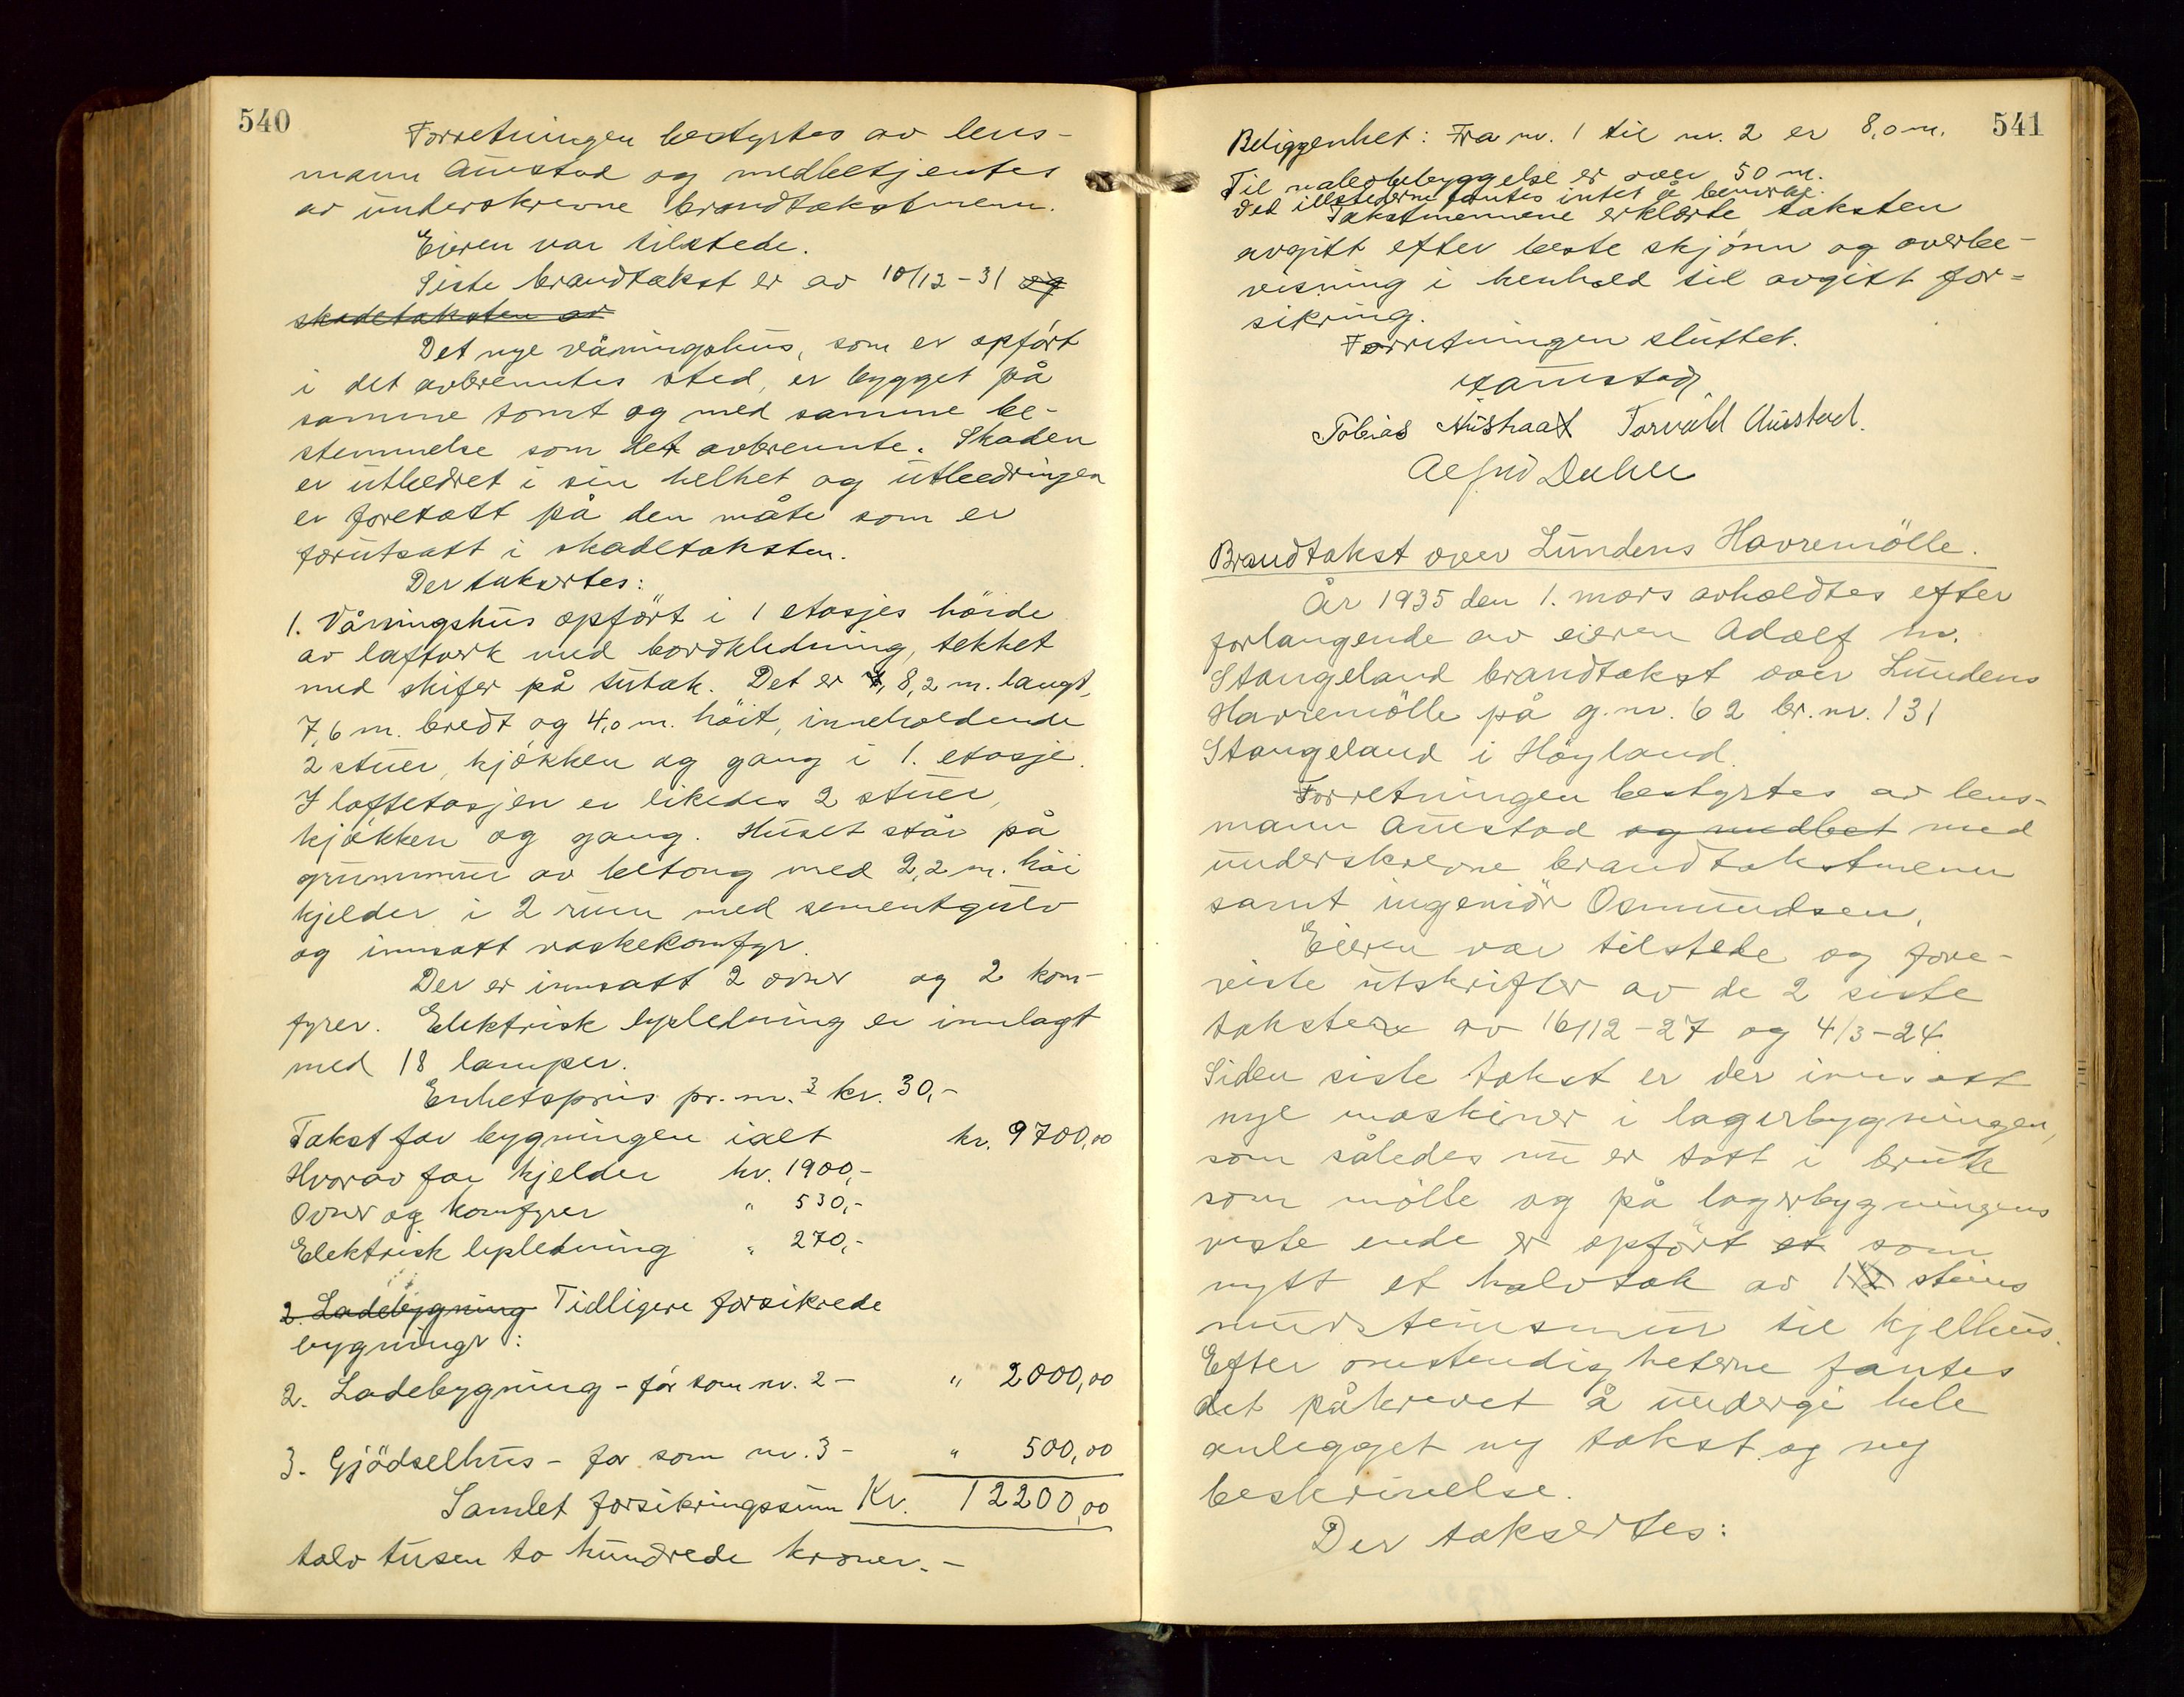 540
Forretningen bestyrtes av lens-
mann Aurstad og medbetjentes
av underskrevne brandtakstmenn.
Eieren var tilstede.
Siste brandtakst er av 10/12-31 og
skadetaksten av
Det nye våningshus, som er opført
i det avbrenntes sted, er bygget på
samme tomt og med samme be-
stemmelse som det avbrennte. Skaden
er utbedret i sin helhet og utbedringen
er foretatt på den måte som er
forutsatt i skadetaksten.
Der taksertes:
1. Våningshus opført i 1 etasjes höide
av laftverk med bordkledning, tekket
med skifer på sutak. Det er 8,2 m. langt,
7,6 m. bredt og 4,0 m. höit, inneholdende
2 stuer, kjøkken og gang i 1. etasje.
I loftetasjen er likedes 2 stuer,
kjøkken og gang. Huset står på
grunnmur av betong med 2,2 m. höi
kjelder i 2 rum med sementgulv
og innsatt vaskekomfyr.
Der er innsatt 2 ovner og 2 kom-
fyrer. Elektrisk lysledning er innlagt
med 18 lamper.
Enhetspris pr. m.3 kr. 30,-
Takst for bygningen ialt kr. 9700,00
Hvorav for kjelder kr. 1900,-
Ovner og komfyrer " 530,-
Elektrisk lysledning " 270,-
2. Ladebygning Tidligere forsikrede
bygninger:
2. Ladebygning - før som nr. 2 - " 2000,00
3. Gjödselhus - før som nr. 3 - " 500,00
Samlet forsikringssum Kr. 12200,00
tolv tusen to hundrede kroner. -
541
Beliggenhet: Fra nr. 1 til nr. 2 er 8,0 m.
Til nabobebyggelse er over 50 m.
Ved illstederne fantes intet å bemerke.
Takstmennene erklærte taksten
avgitt efter beste skjønn og overbe-
visning i henhold til avgitt for-
sikring.
Forretningen sluttet.
Aurstad
Tobias Torvald Aurstad.
Brandtakst over Lundens Havremölle.
År 1935 den 1. mars avholdtes efter
forlangende av eieren Adolf M.
Stangeland brandtakst over Lundens
Havremölle på g.nr. 62 br.nr. 131
Stangeland i Höyland.
Forretningen bestyrtes av lens-
mann Aurstad og medbet med
underskrevne brandtakstmenn
samt ingeniör Osmundsen.
Eieren var tilstede og fore-
viste utskrifter av de 2 siste
takster av 16/12-27 og 4/3-24.
Siden siste takst er der innsatt
nye maskiner i lagerbygningen,
som således nu er tatt i bruk
som mölle og på lagerbygningens
veste ende er opført et som
nytt et halvtak av 1 1/2 steins
murstensmur til kjelhus.
Efter omstendigheterne fantes
det påkrevet å undergi hele
anlegget ny takst og ny
beskrivelse.
Der taksertes: